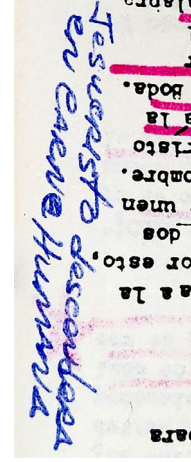 Jesucristo descendera
en Carne Humana
para
a la
or esto,
dos
unen
ombre.
risto
a la
Boda.